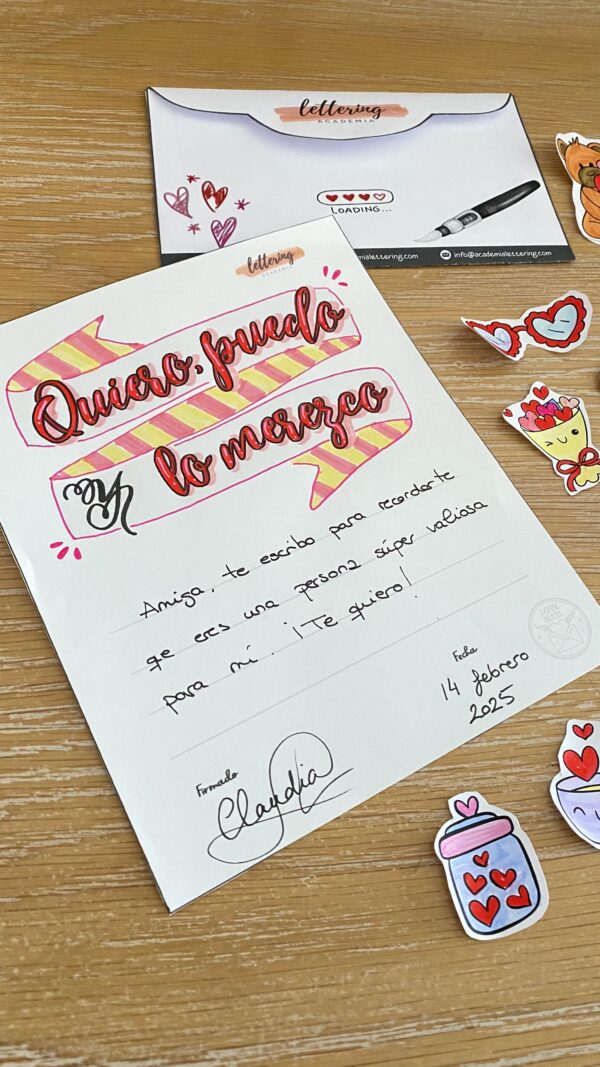 lettering
ACADEMIA
LOADING...
mialettering.com info@academialettering.com
lettering
ACADEMIA
Quiero, puedo
lo merezco
Amiga, te escribo para recordarte
qe eres una persona súper valiosa
para mí. ¡Te quiero!
LOVE
MAIL
Fecha
14 febrero
2025
Firmado
Claudia